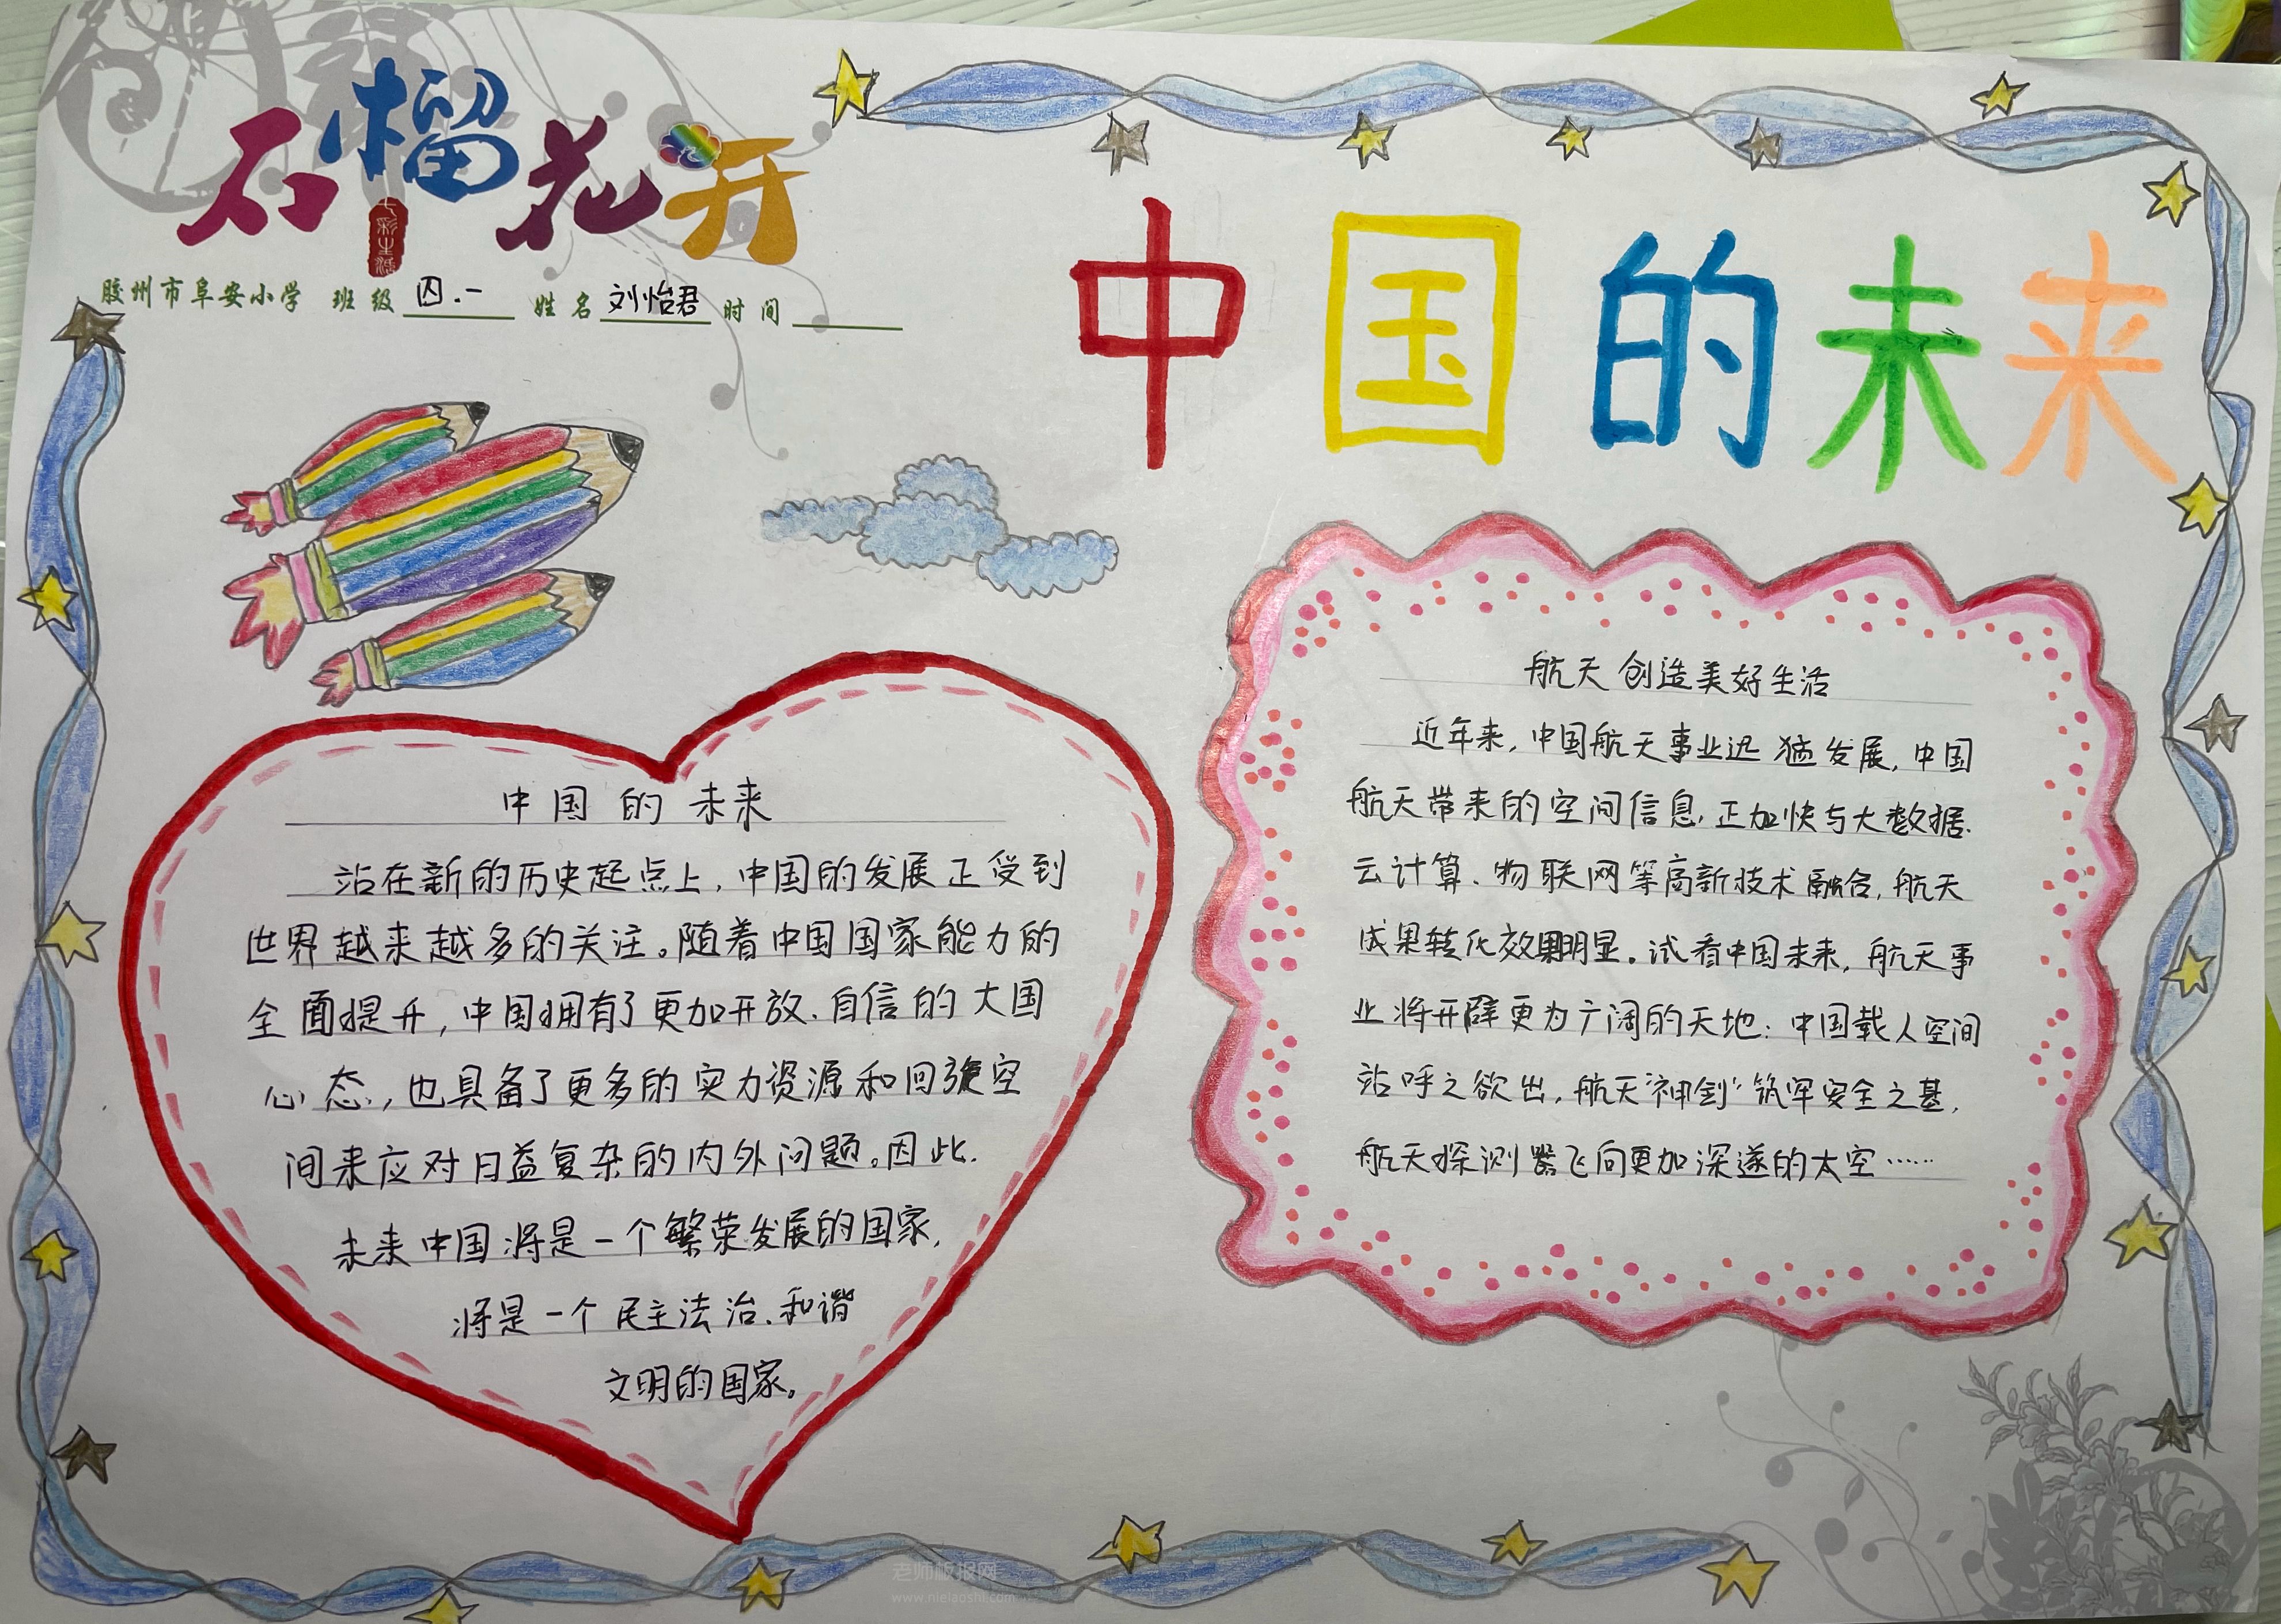 石榴花开
七彩生活
胶州市阜安小学 班级 四.一 姓名 刘怡君 时间
中国的未来
中国的未来
站在新的历史起点上,中国的发展正受到
世界越来越多的关注。随着中国国家能力的
全面提升,中国拥有了更加开放、自信的大国
心态,也具备了更多的实力资源和回旋空
间来应对日益复杂的内外问题。因此、
未来中国将是一个繁荣发展的国家,
将是一个民主法治、和谐
文明的国家。
航天创造美好生活
近年来,中国航天事业迅猛发展,中国
航天带来的空间信息,正加快与大数据、
云计算、物联网等高新技术融合,航天
成果转化效果明显。试看中国未来,航天事
业将开辟更为广阔的天地:中国载人空间
站呼之欲出,航天“神剑”筑牢安全之基,
航天探测器飞向更加深邃的太空……
老师板报网
www.nielaoshi.com